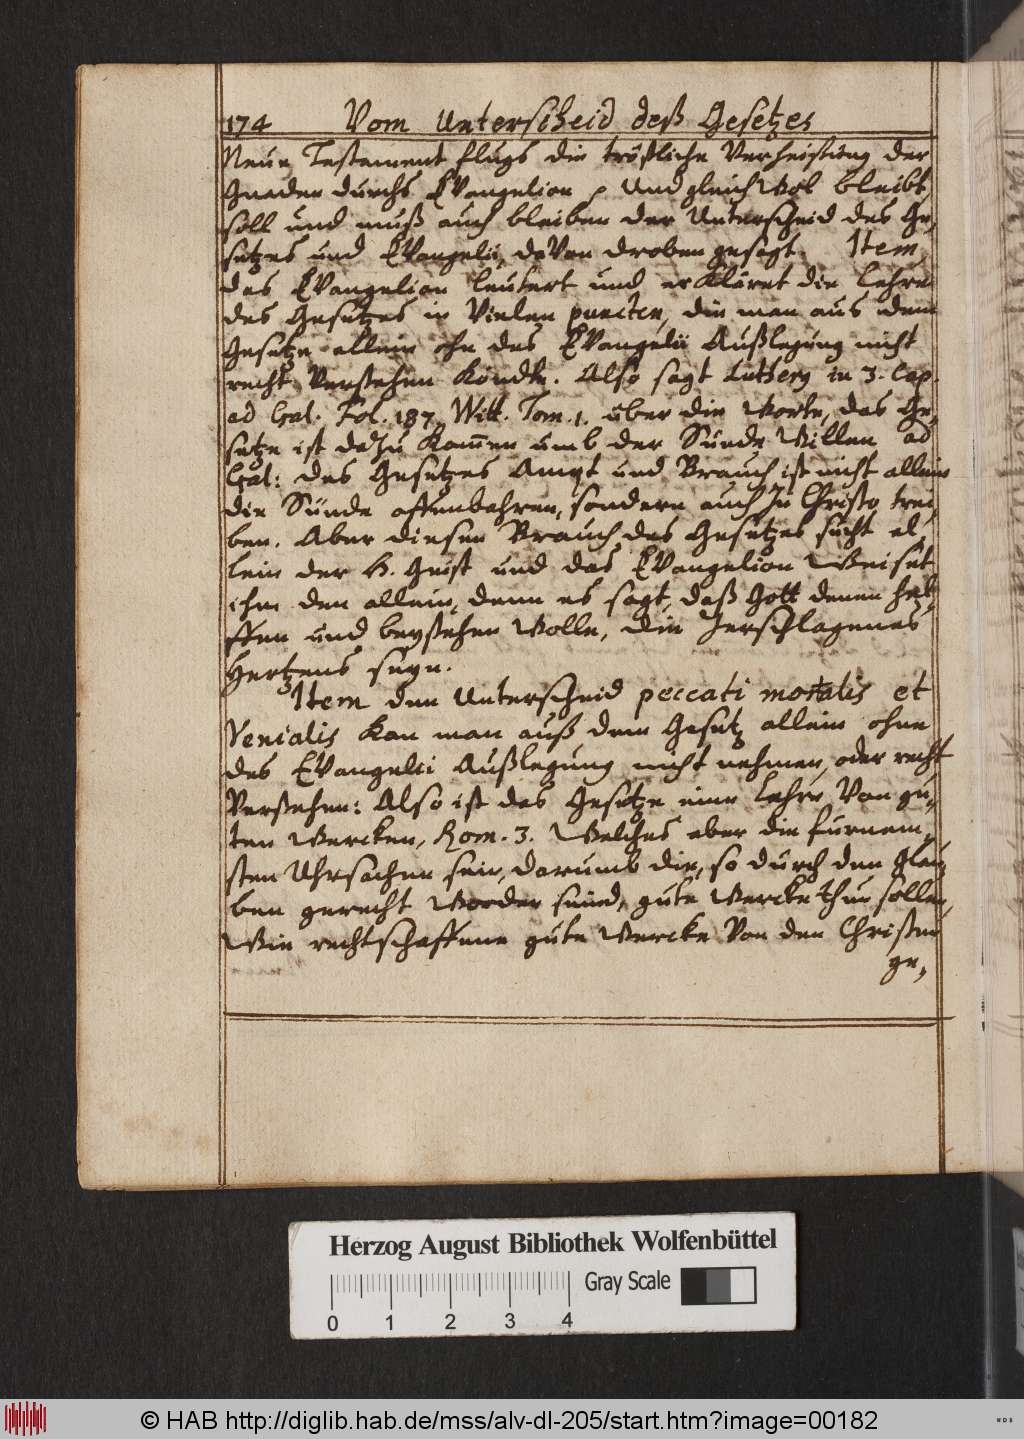 174 Vom Unterscheid deß Gesetzes
Neue Testament flugs die tröstliche Verheissung der
Gnaden durchs Evangelion, Und gleich Wol bleibt
soll und muß auch bleiben der Unterscheid des Ge,
setzes und Evangelii, da Von droben gesagt. Item,
das Evangelion leutert und erkläret die Lehre
des Gesetzes in Vielen puncten, die man aus dem
Gesetze allein ohn des Evangelii Außlegung nicht
recht Verstehen köndte. Also sagt Lutherg in 3. Cap.
ad Gal. Fol. 187. Witt. Tom. 1. über die Worte, das Ge,
setze ist dazu kom̅en umb der Sünde Willen ad
Gal: des Gesetzes Ampt und Brauch ist nicht allein
die Sünde offenbahren, sondern auch zu Christo trei,
ben. Aber diesen Brauch des Gesetzes sucht al,
lein der H. Geist und das Evangelion Weiset
ihm den allein, denn es sagt, daß Gott denen hel,
ffen und beystehen Wolle, die zerschlagenes
Hertzens seyn.
Item den Unterscheid peccati mortalis et
Venialis kan man auß dem Gesetz allein ohne
des Evangelii Außlegung nicht nehmen, oder recht
Verstehen: Also ist das Gesetze eine Lehre Von gu,
ten Wercken, Rom. 3. Welches aber die furnem,
sten Uhrsachen sein, darumb die, so durch den Glau,
ben gerecht Worden seind, gute Wercke thun sollen,
Wie rechtschaffene gute Wercke Von den Christen
ge,
Herzog August Bibliothek Wolfenbüttel
Gray Scale
0 1 2 3 4
© HAB http://diglib.hab.de/mss/alv-dl-205/start.htm?image=00182